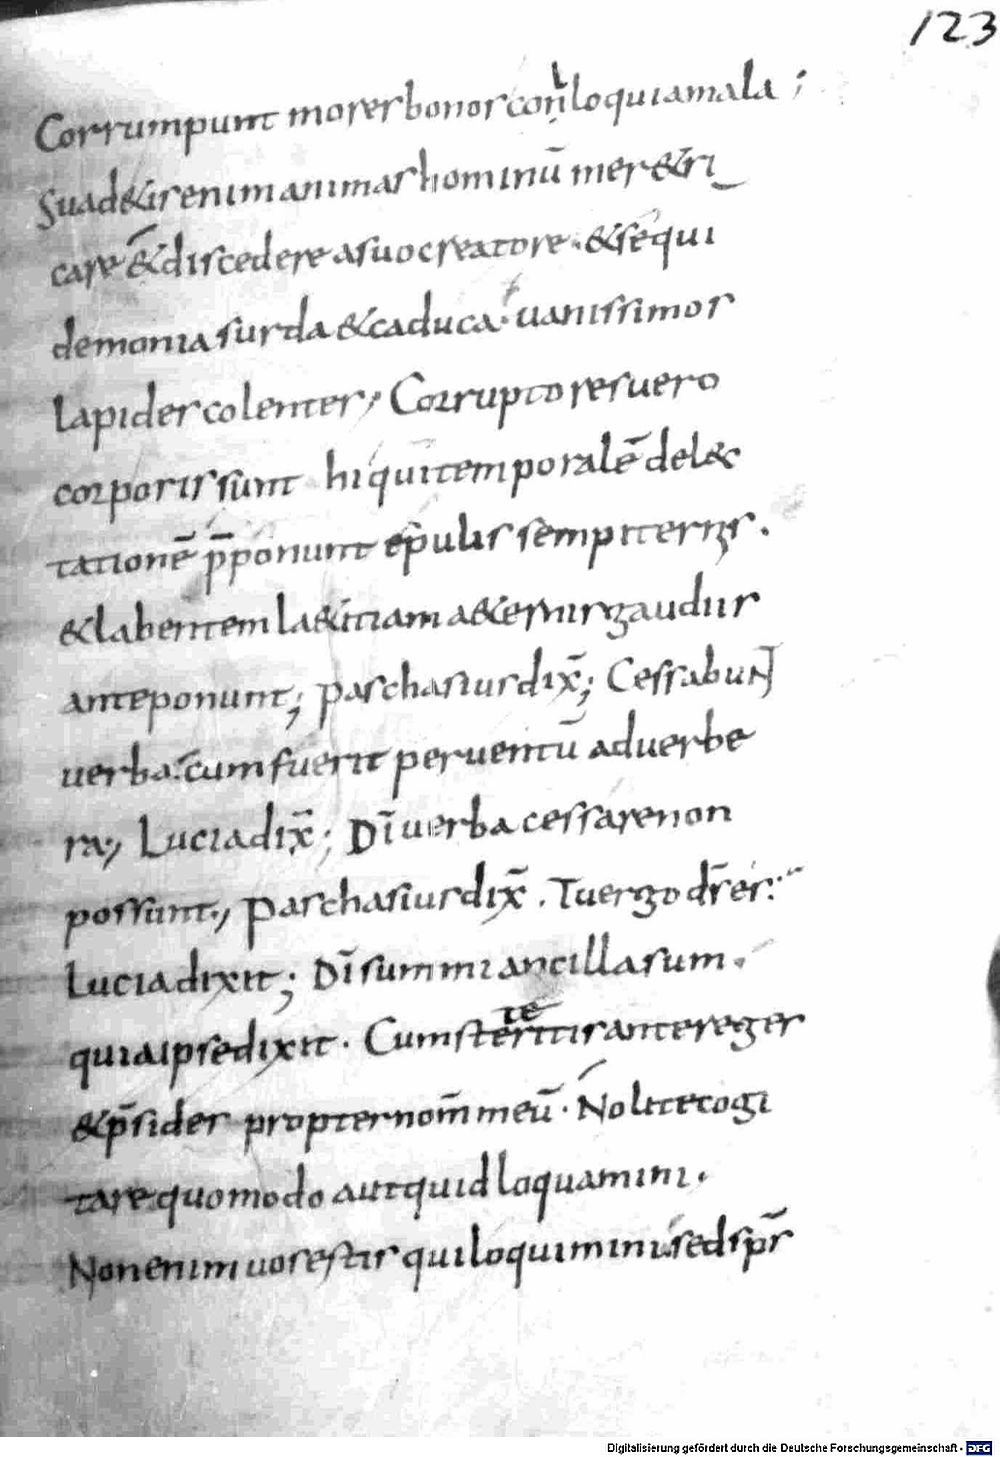 123
Corrumpunt mores bonos conloquia mala;
Suad&is enim animas hominū mer&ri
care & discedere a suo creatore. & sequi
demonia surda & caduca. uanissimos
lapides colentes; Corruptores uero
corporis sunt hi qui temporalē delec
tationē p̄ponunt epulis sempiternis.
& labentem l&itiam a&ernis gaudiis
anteponunt; paschasius dix̄; Cessabunt
uerba. cum fuerit peruentū ad uerbe
ra; Lucia dix̄; Dī uerba cessare non
possunt; paschasius dix̄. Tu ergo dš es?
Lucia dixit; Dī summi ancilla sum.
quia ipse dixit. Cum steteritis ante reges
& p̄sides propter nom̄ meū. Nolite cogi
tare quomodo aut quid loquamini.
Non enim uos estis qui loquimini. sed sp̄s
Digitalisierung gefördert durch die Deutsche Forschungsgemeinschaft - DFG